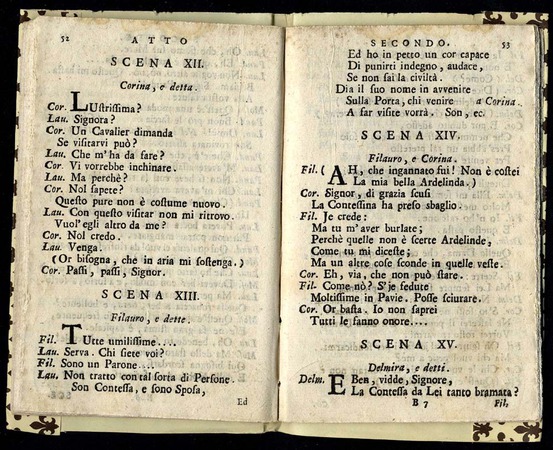 52 ATTO
SCENA XII.
Corina, e detta.
Cor. LUstrissima?
Lau. Signora?
Cor. Un Cavalier dimanda
Se visitarvi può?
Lau. Che m'ha da fare?
Cor. Vi vorrebbe inchinare.
Lau. Ma perchè?
Cor. Nol sapete?
Questo pure non è costume nuovo.
Lau. Con questo visitar non mi ritrovo.
Vuol' egli altro da me?
Cor. Nol credo.
Lau. Venga.
(Or bisogna, che in aria mi sostenga.)
Cor. Passi, passi, Signor.
SCENA XIII.
Filauro, e dette.
Fil. TUtte umilissime....
Lau. Serva. Chi siete voi?
Fil. Sono un Parone....
Lau. Non tratto con tal sorta di Persone.
Son Contessa, e sono Sposa,
Ed
SECONDO. 53
Ed ho in petto un cor capace
Di punirti indegno, audace,
Se non sai la civiltà.
Dia il suo nome in avvenire
Sulla Porta, chi venire a Corina.
A far visite vorrà. Son, ec.
SCENA XIV.
Filauro, e Corina.
Fil. (AH, che ingannato fui! Non è costei
La mia bella Ardelinda.)
Cor. Signor, di grazia scusi
La Contessina ha preso sbaglio.
Fil. Je crede:
Ma tu m'aver burlate;
Perchè quelle non è scerte Ardelinde,
Come tu mi diceste;
Ma un altre cose sconde in quelle veste.
Cor. Eh, via, che non può stare.
Fil. Come nò? S'je fedute
Moltissime in Pavie. Posse sciurare.
Cor. Or basta. Io non saprei
Tutti le fanno onore....
SCENA XV.
Delmira, e detti.
Delm. EBen, vidde, Signore,
La Contessa da Lei tanto bramata?
B 7 Fil.